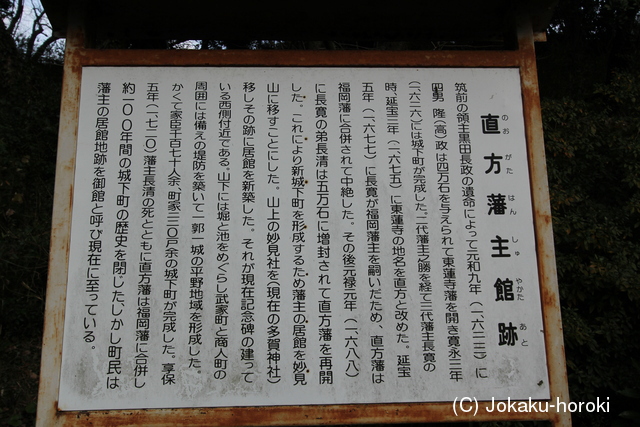 直方藩主館跡
のおがたはんしゅやかたあと
筑前の領主黒田長政の遺命によって元和九年(一六二三)に
四男 隆(高)政は四万石を与えられて東蓮寺藩を開き寛永三年
(一六二六)には城下町が完成した。二代藩主之勝を経て三代藩主長寛の
時、延宝三年(一六七五)に東蓮寺の地名を直方と改めた。延宝
五年(一六七七)に長寛が福岡藩主を嗣いだため、直方藩は
福岡藩に合併されて中絶した。その後元禄元年(一六八八)
に長寛の弟長清は五万石に増封されて直方藩を再開
した。これにより新城下町を形成するため藩主の居館を妙見
山に移すことにした。山上の妙見社を(現在の多賀神社)
移しその跡に居館を新築した。それが現在記念碑の建って
いる西側付近である。山下には堀と池をめぐらし武家町と商人町の
周囲には備えの堤防を築いて一郭一城の平野地域を形成した。
かくて家臣千百七十人余、町家三三〇戸余の城下町が完成した。享保
五年(一七二〇)藩主長清の死とともに直方藩は福岡藩に合併し
約一〇〇年間の城下町の歴史を閉じた、しかし町民は
藩主の居館地跡を御館と呼び現在に至っている。
(C) Jokaku-horoki